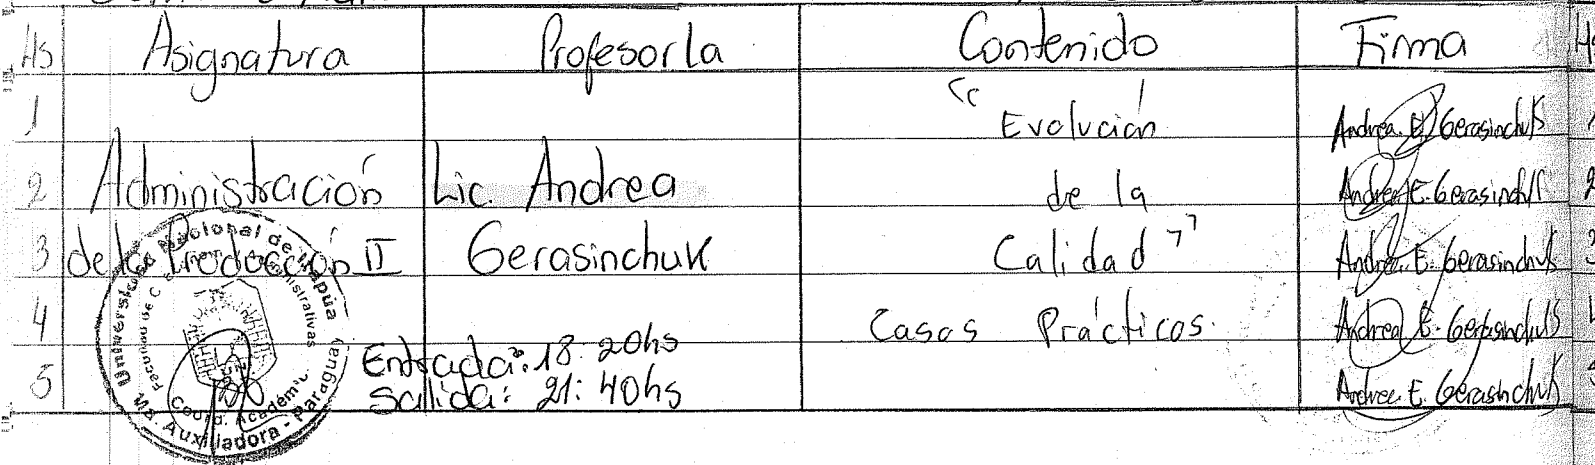 Hs Asignatura Profesor/a Contenido Firma Hs
1 "Evolución Andrea E. Gerasinchuk
2 Administración Lic. Andrea de la Andrea E. Gerasinchuk 2
3 de la Producción II Gerasinchuk Calidad" Andrea E. Gerasinchuk 3
4 Casos Prácticos. Andrea E. Gerasinchuk
Entrada: 18:20hs
5 Salida: 21:40hs Andrea E. Gerasinchuk
Universidad Nacional de Itapúa
Facultad de C
Administrativas
Coord. Académ
Ma. Auxiliadora - Paraguay